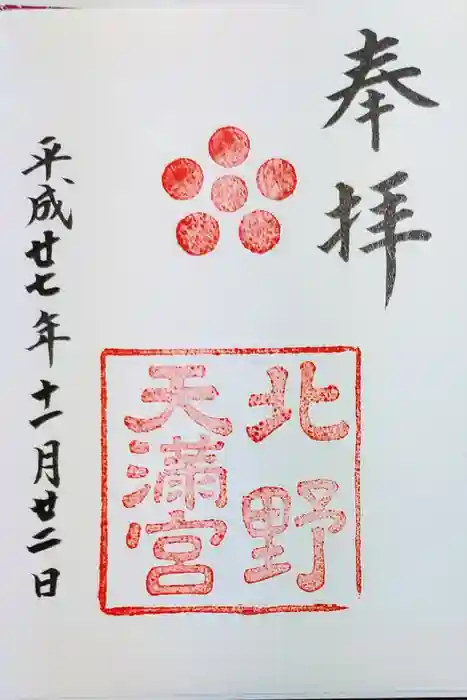 奉拝
北野
天満宮
平成廿七年十一月廿二日